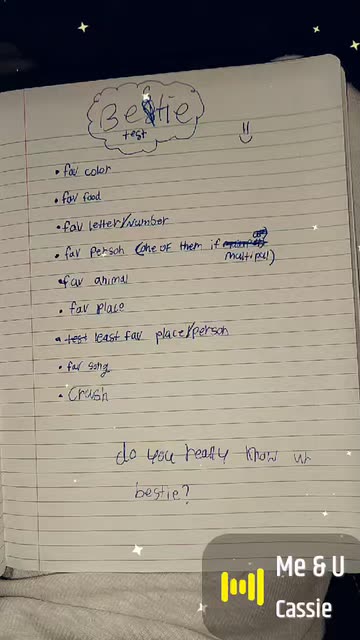 Bestie
test
• fav color
• fav food
• fav letter/number
• fav person (one of them if
multipul)
• fav animal
• fav place
• test least fav place/person
• fav song
• Crush
do you really know ur
bestie?
Me & U
Cassie